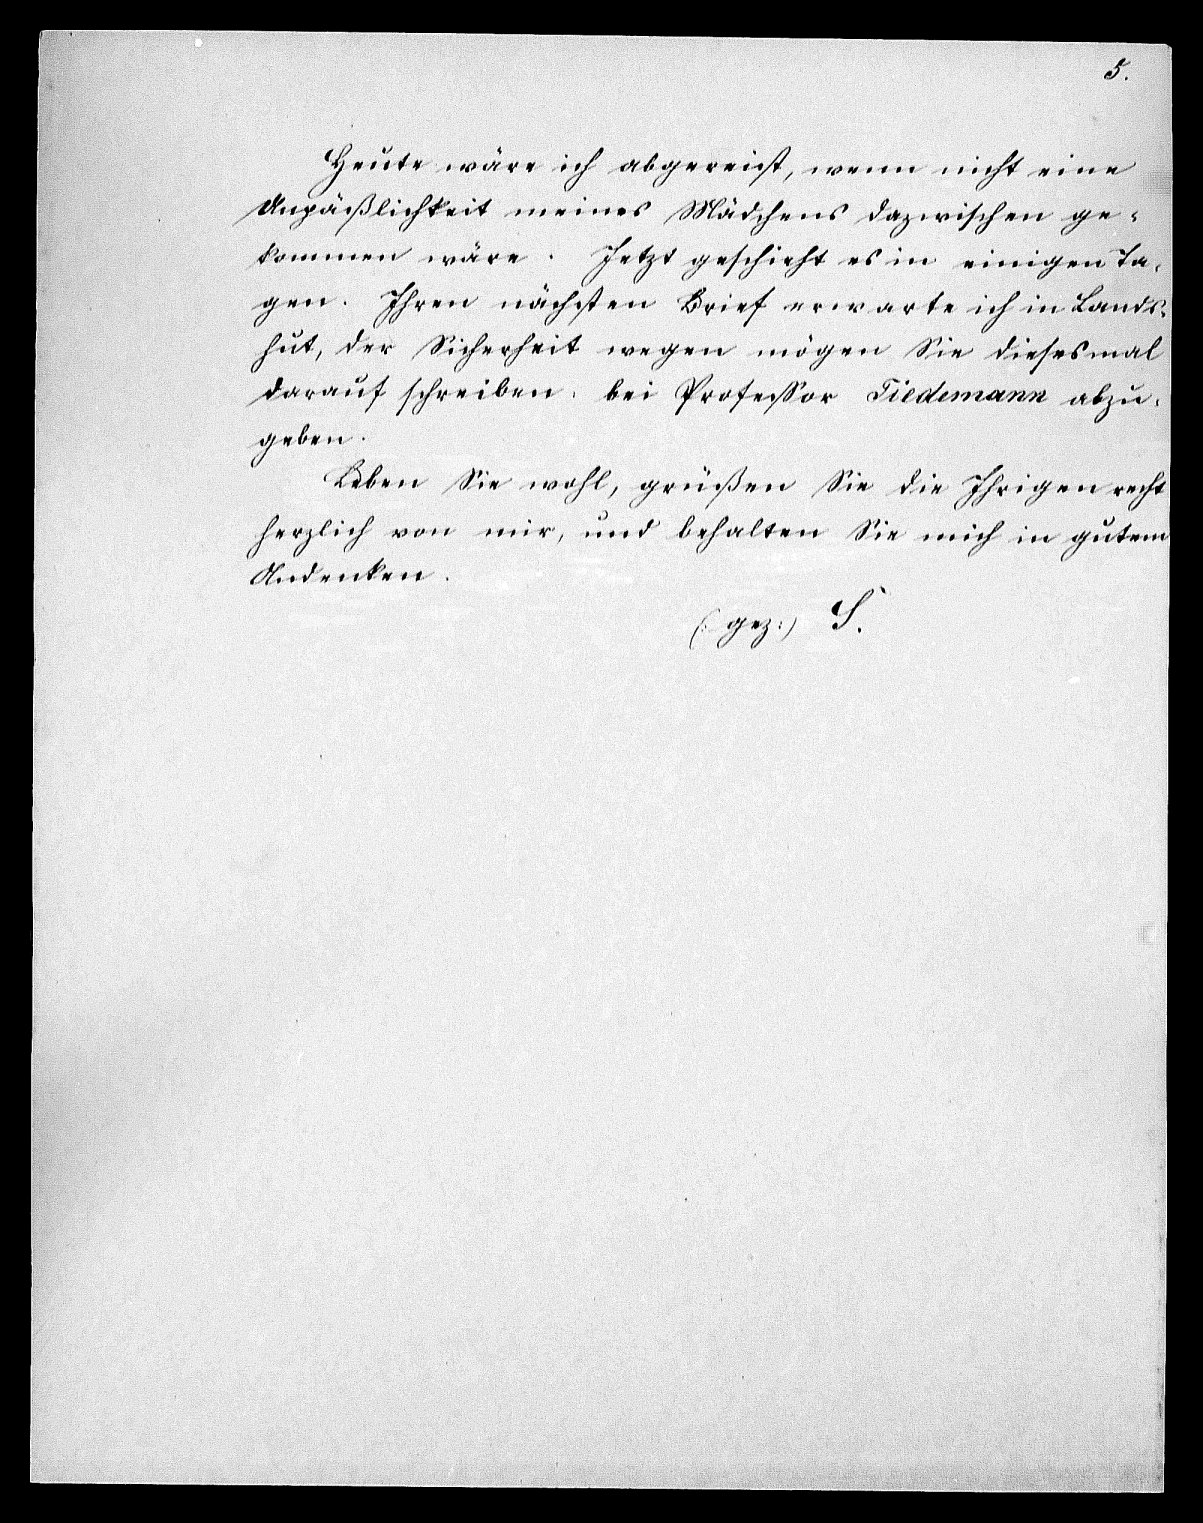 5.
Heute wäre ich abgereist, wenn nicht eine
Unpäßlichkeit meines Mädchens dazwischen ge-
kommen wäre. Jetzt geschieht es in einigen Ta-
gen. Ihren nächsten Brief erwarte ich in Lands-
hut, der Sicherheit wegen mögen Sie diesesmal
darauf schreiben: bei Professor Tiedemann abzu-
geben.
Leben Sie wohl, grüßen Sie die Ihrigen recht
herzlich von mir, und behalten Sie mich in gutem
Andenken.
(: gez:) S.